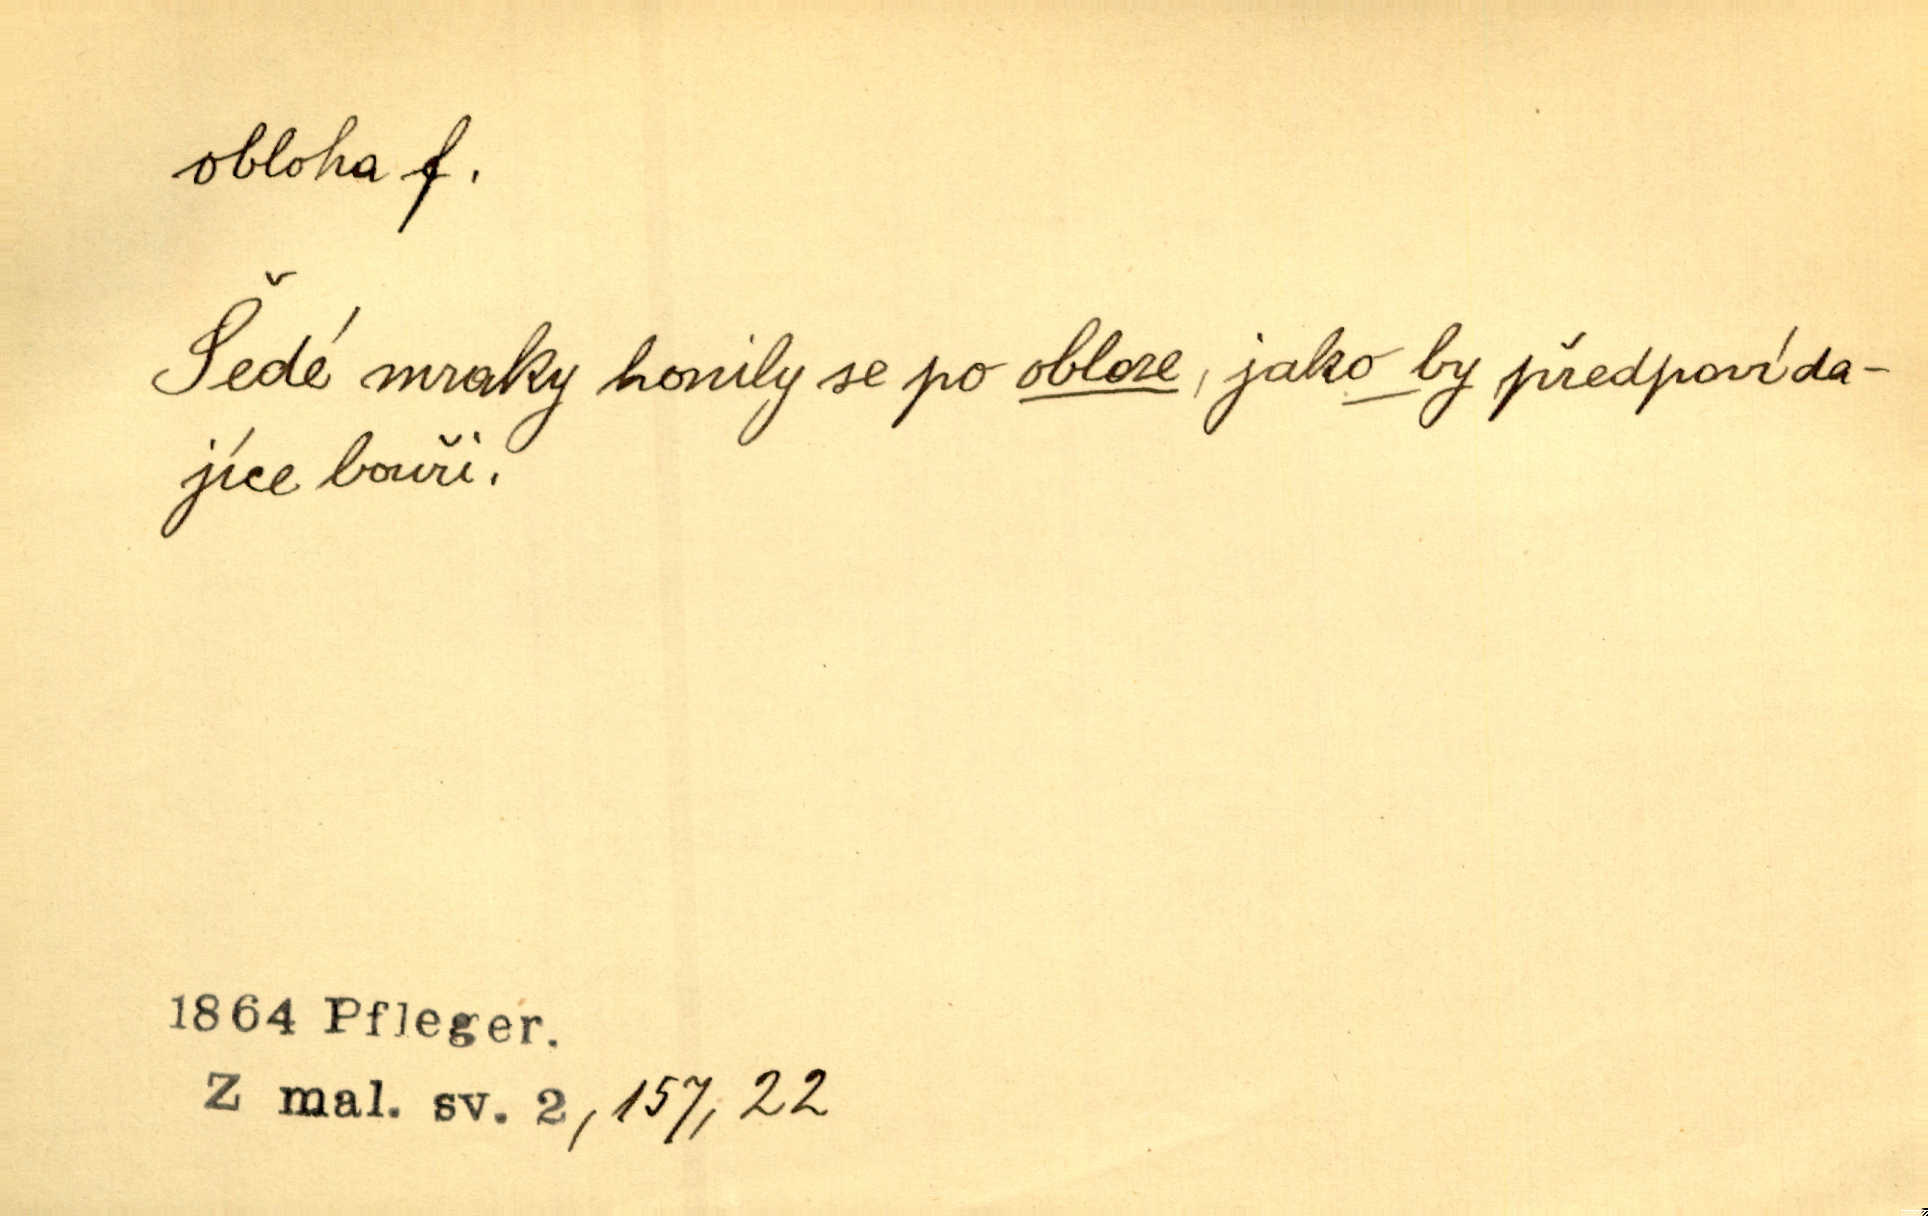 obloha f.
Šedé mraky honily se po obloze, jako by předpovída-
jíce bouři.
1864 Pfleger.
Z mal. sv. 2, 157, 22